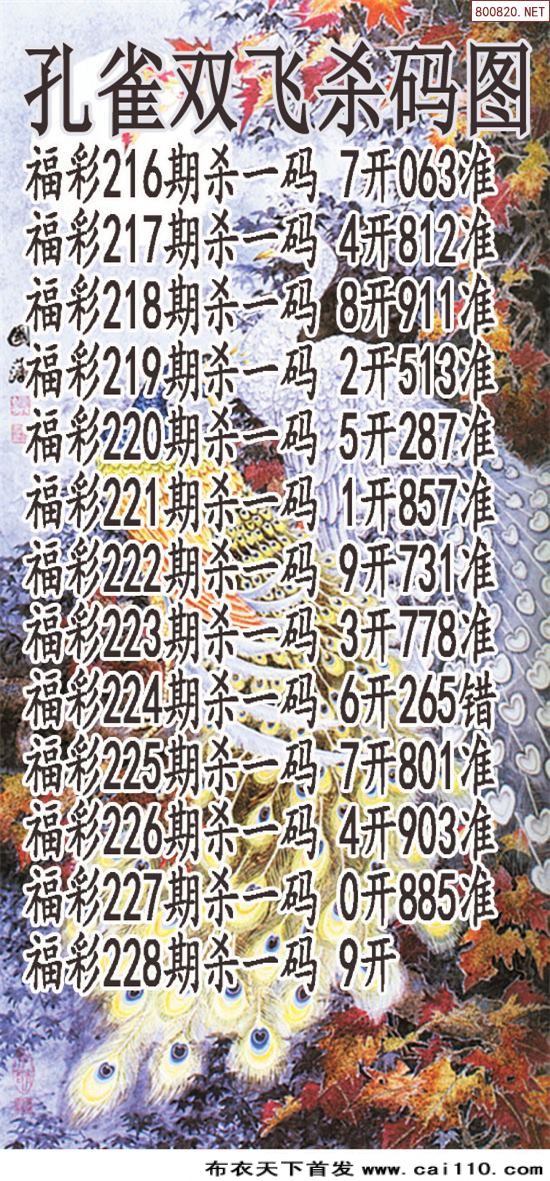 800820.NET
孔雀双飞杀码图
福彩216期杀一码 7开063准
福彩217期杀一码 4开812准
福彩218期杀一码 8开911准
福彩219期杀一码 2开513准
福彩220期杀一码 5开287准
福彩221期杀一码 1开857准
福彩222期杀一码 9开731准
福彩223期杀一码 3开778准
福彩224期杀一码 6开265错
福彩225期杀一码 7开801准
福彩226期杀一码 4开903准
福彩227期杀一码 0开885准
福彩228期杀一码 9开
布衣天下首发 www.cai110.com